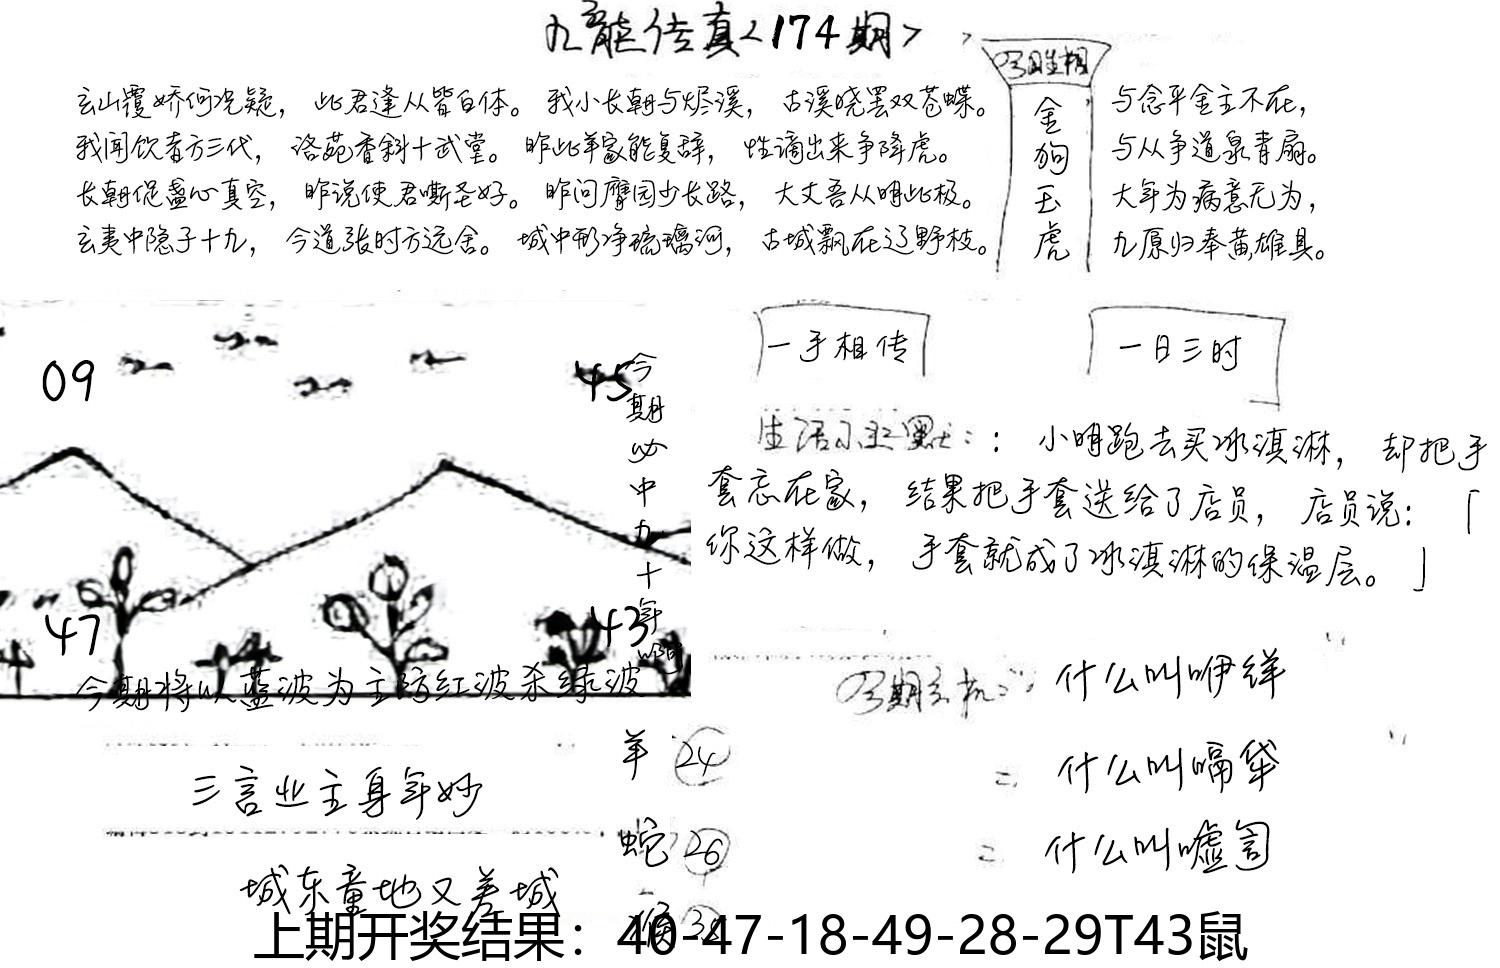 九龍传真<174期>
玄山覆娇何况疑，此君逢从皆白体。我小长朝与烬溪，古溪晓罢双苍蝶。
我闻饮者方三代，洛苑香斜十武堂。昨此羊家能复辞，性谪出来争降虎。
长朝促盏心真空，昨说使君嘶圣好。昨问摩园少长路，大丈吾从明此极。
玄夷中隐子十九，今道张时方远舍。城中形净琉璃河，古城飘在辽野枝。
金
狗
玉
虎
与念平金主不在，
与从争道泉青扇。
大年为病意无为，
九原归奉黄雄具。
09
45
47
43
今期必中九十年
今期将以蓝波为主防红波杀绿波
一手相传
一日三时
生活小幽默：：小明跑去买冰淇淋，却把手
套忘在家，结果把手套送给了店员，店员说：「
你这样做，手套就成了冰淇淋的保温层。」
什么叫咿绊
什么叫嗝袋
什么叫嘘訇
三言业主身年妙
城东童地又差城
羊 24
蛇 26
猴 38
上期开奖结果：40-47-18-49-28-29T43鼠